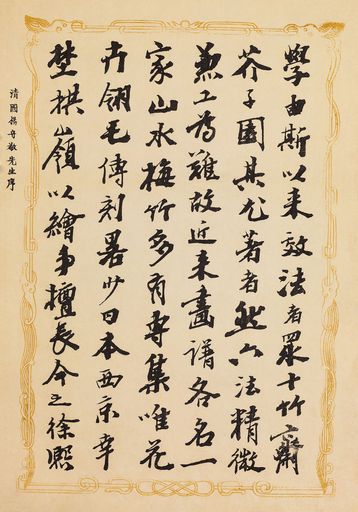 學由斯以来效法者眾十竹齋
芥子園其尤著者然六法精微
兼工為難故近来畫譜各名一
家山水梅竹多有專集唯花
卉翎毛傳刻畧少日本西京幸
埜楳嶺以繪事擅長今之徐熙
清國楊守敬先生序